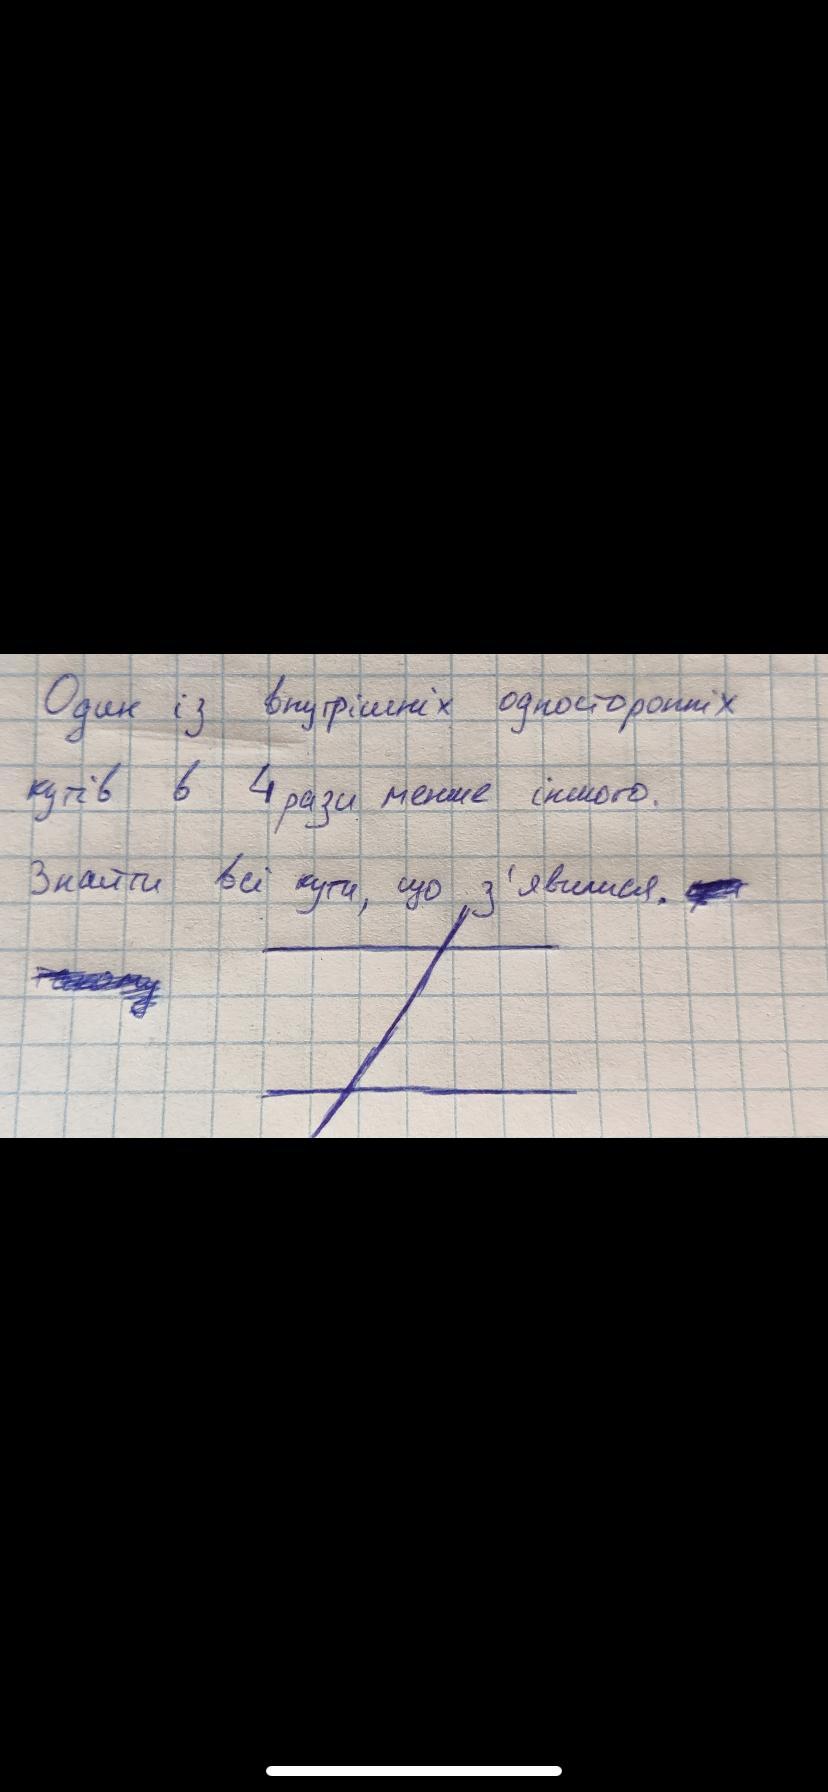 Один із внутрішніх односторонніх
кутів в 4 рази менше іншого.
Знайти всі кути, що з'явилися.